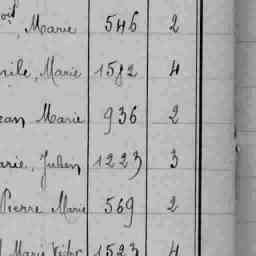 , Marie 546 2
mile, Marie 1582 4
ean Marie 936 2
arie, Julien 1223 3
Pierre Marie 569 2
Marie Victor 1523 4